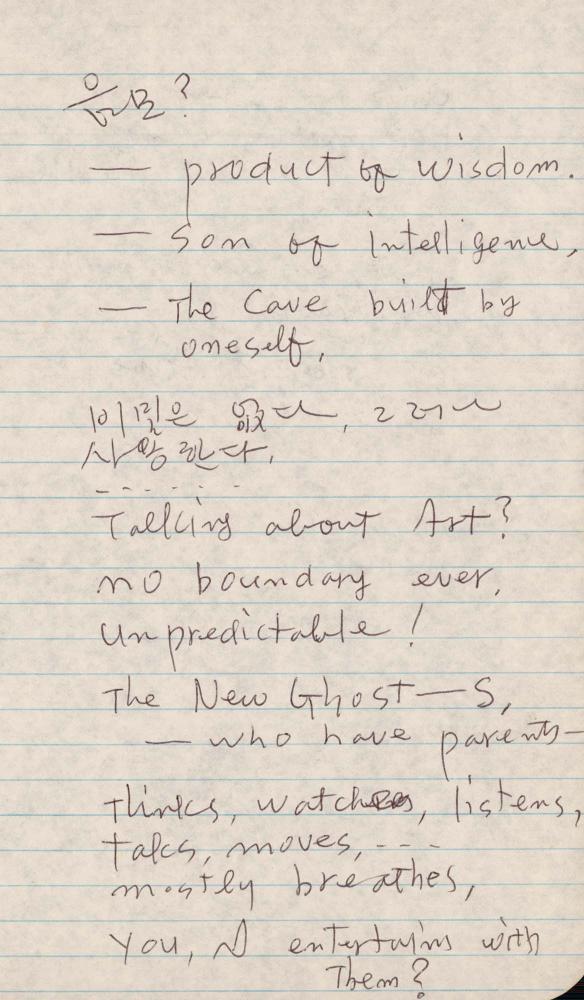 음모?
— product of wisdom.
— Son of intelligence,
— The Cave built by
oneself,
비밀은 없다, 그러나
사랑한다,
- - - - - -
Talking about Art?
no boundary ever,
Unpredictable!
The New Ghost—S,
— who have parents—
Thinks, watches, listens,
talks, moves, - - -
mostly breathes,
You, I entertains with
Them?